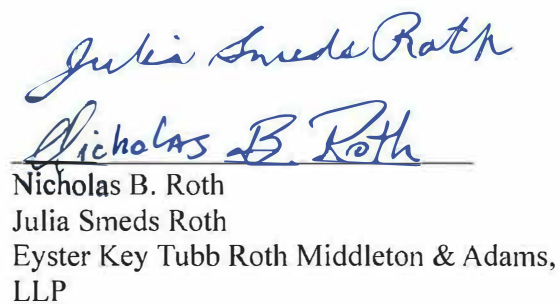 Julia Smeds Roth
Nicholas B. Roth
Nicholas B. Roth
Julia Smeds Roth
Eyster Key Tubb Roth Middleton & Adams,
LLP